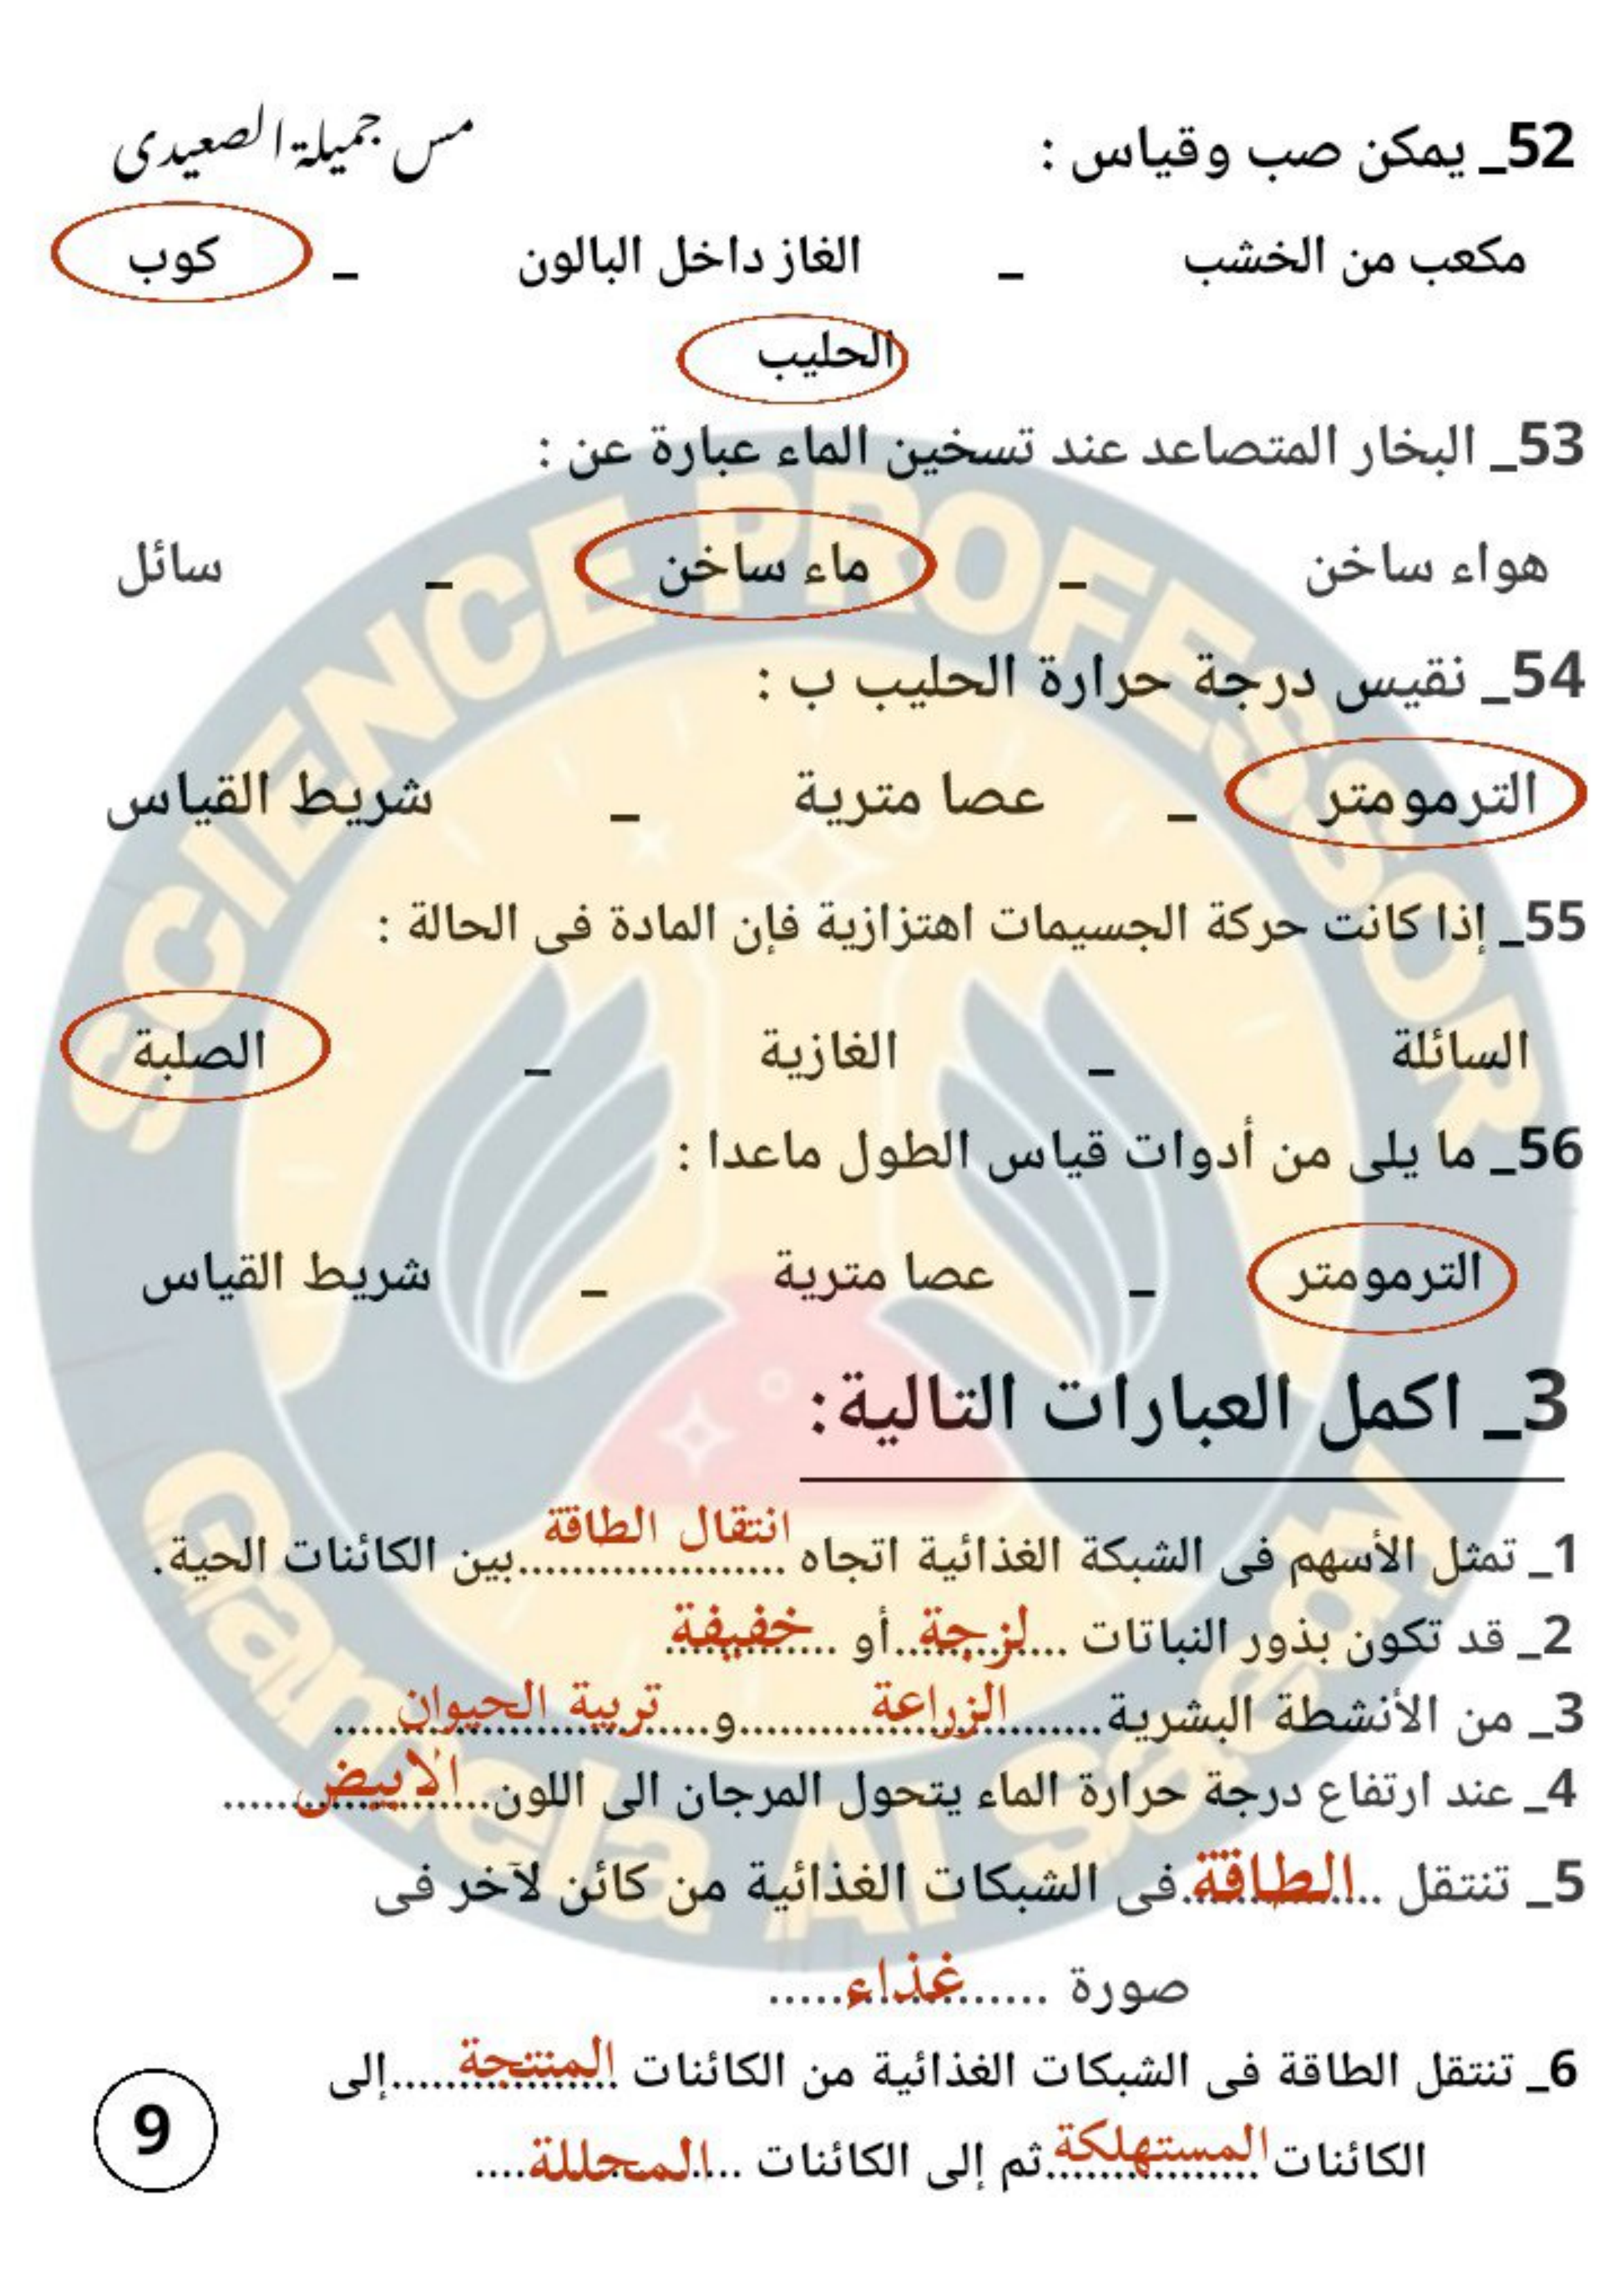 مس جميلة الصعيدى
52_ يمكن صب وقياس :
مكعب من الخشب _ الغاز داخل البالون _ كوب
الحليب
53_ البخار المتصاعد عند تسخين الماء عبارة عن :
هواء ساخن _ ماء ساخن _ سائل
54_ نقيس درجة حرارة الحليب ب :
الترمومتر _ عصا مترية _ شريط القياس
55_ إذا كانت حركة الجسيمات اهتزازية فإن المادة فى الحالة :
السائلة _ الغازية _ الصلبة
56_ ما يلى من أدوات قياس الطول ماعدا :
الترمومتر _ عصا مترية _ شريط القياس
3_ اكمل العبارات التالية:
1_ تمثل الأسهم فى الشبكة الغذائية اتجاه انتقال الطاقة بين الكائنات الحية.
2_ قد تكون بذور النباتات لزجة أو خفيفة
3_ من الأنشطة البشرية الزراعة و تربية الحيوان
4_ عند ارتفاع درجة حرارة الماء يتحول المرجان الى اللون الابيض
5_ تنتقل الطاقة فى الشبكات الغذائية من كائن لآخر فى
صورة غذاء
6_ تنتقل الطاقة فى الشبكات الغذائية من الكائنات المنتجة إلى
الكائنات المستهلكة ثم إلى الكائنات المحللة
9
SCIENCE PROFESSOR
Gamela Al Saedy